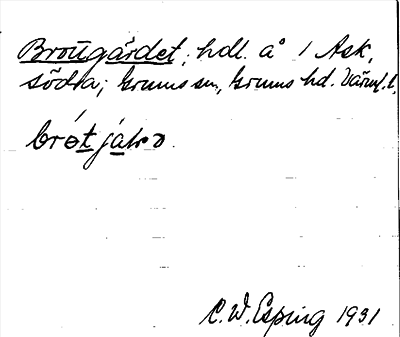 Brötgärdet, hdl. å 1 Ask,
södra; Grums sn, Grums hd. Värml. l.
C. W. Esping 1931